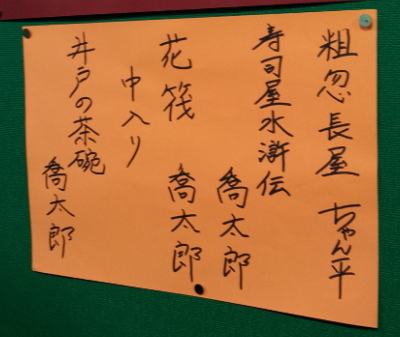 粗忽長屋 ちゃん平
寿司屋水滸伝 喬太郎
花筏 喬太郎
中入り
井戸の茶碗 喬太郎